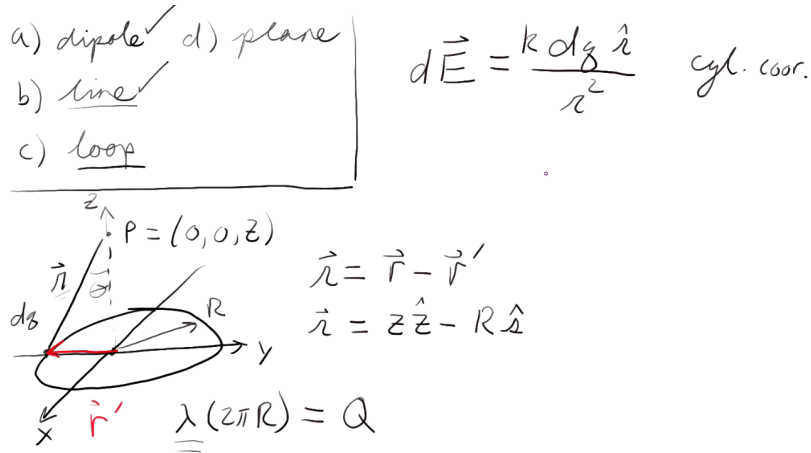 a) dipole ✓ d) plane
b) line ✓
c) loop
dE⃗ = k dq r̂ / r² cyl. coor.
z
P = (0, 0, z)
r⃗
θ
dq
R
y
x
r⃗′
r⃗ = r⃗ - r⃗′
r⃗ = z ẑ - R ŝ
λ(2πR) = Q